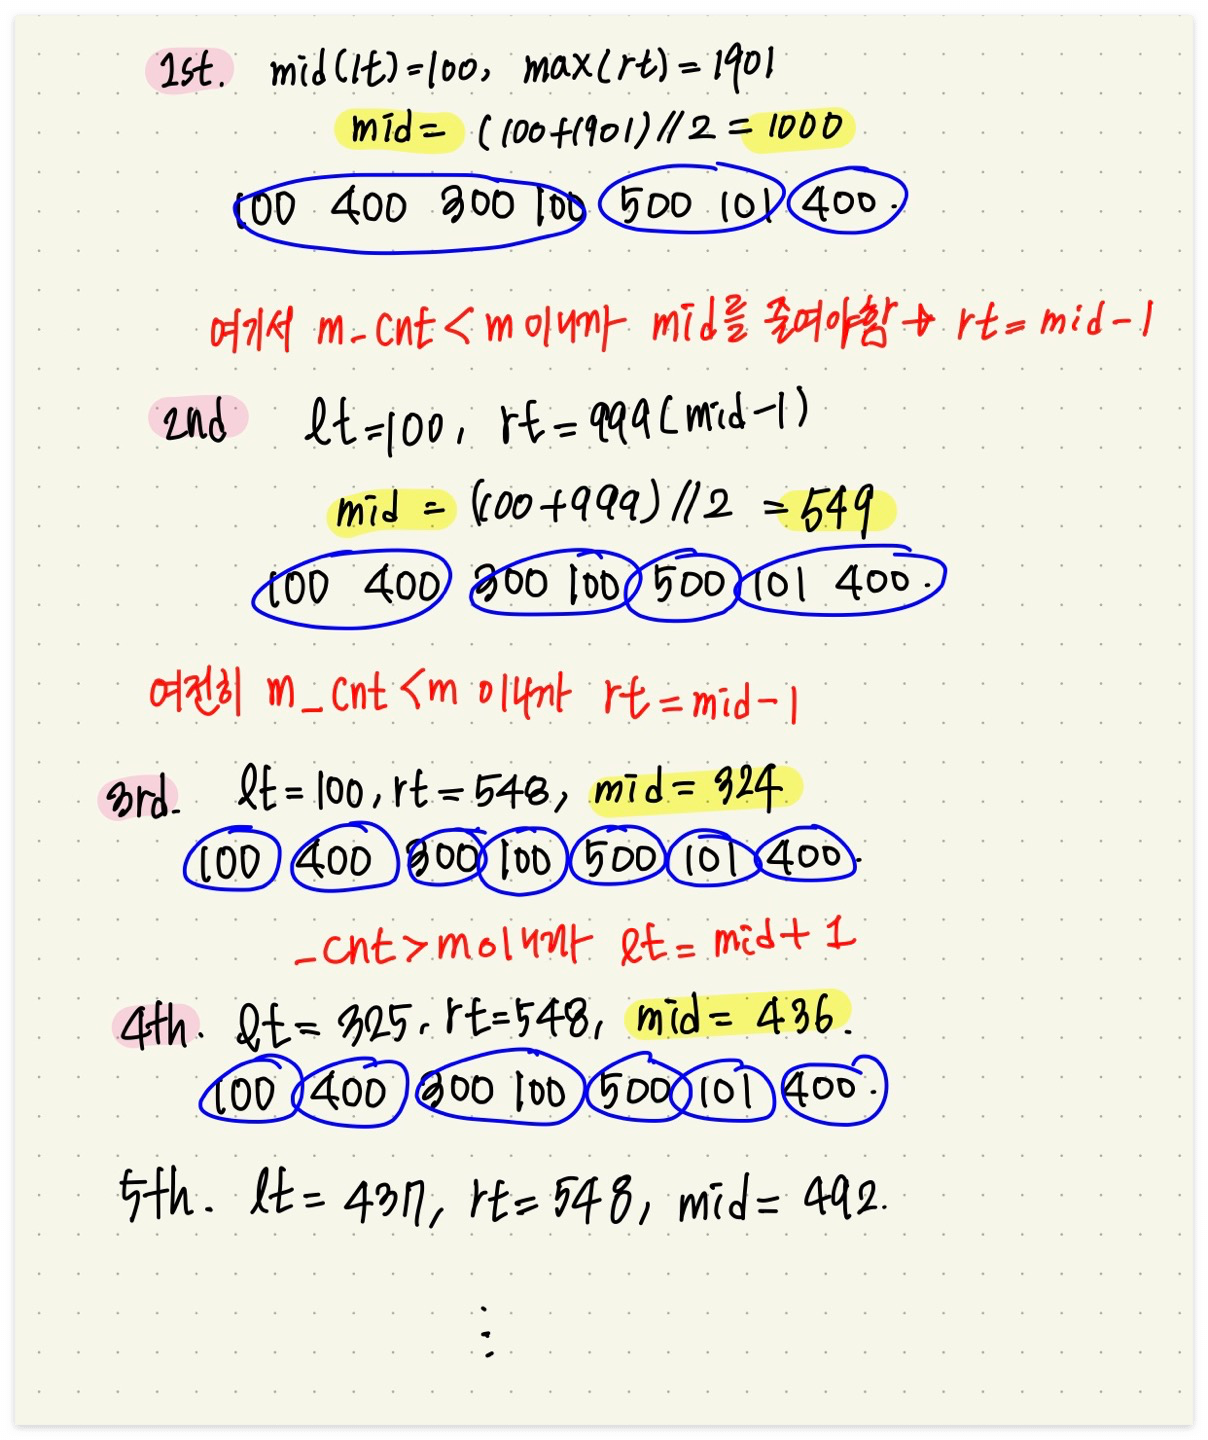 1st. mid(lt)=100, max(rt)=1901
mid= (100+1901)//2 = 1000
100 400 300 100 500 101 400.
여기서 m_cnt < m 이니까 mid를 줄여야함 → rt = mid-1
2nd lt=100, rt=999(mid-1)
mid = (100+999)//2 = 549
100 400 300 100 500 101 400.
여전히 m_cnt < m 이니까 rt = mid-1
3rd. lt=100, rt=548, mid=324
100 400 300 100 500 101 400.
_cnt > m이니까 lt = mid+1
4th. lt=325, rt=548, mid=436.
100 400 300 100 500 101 400.
5th. lt=437, rt=548, mid=492.
⋮